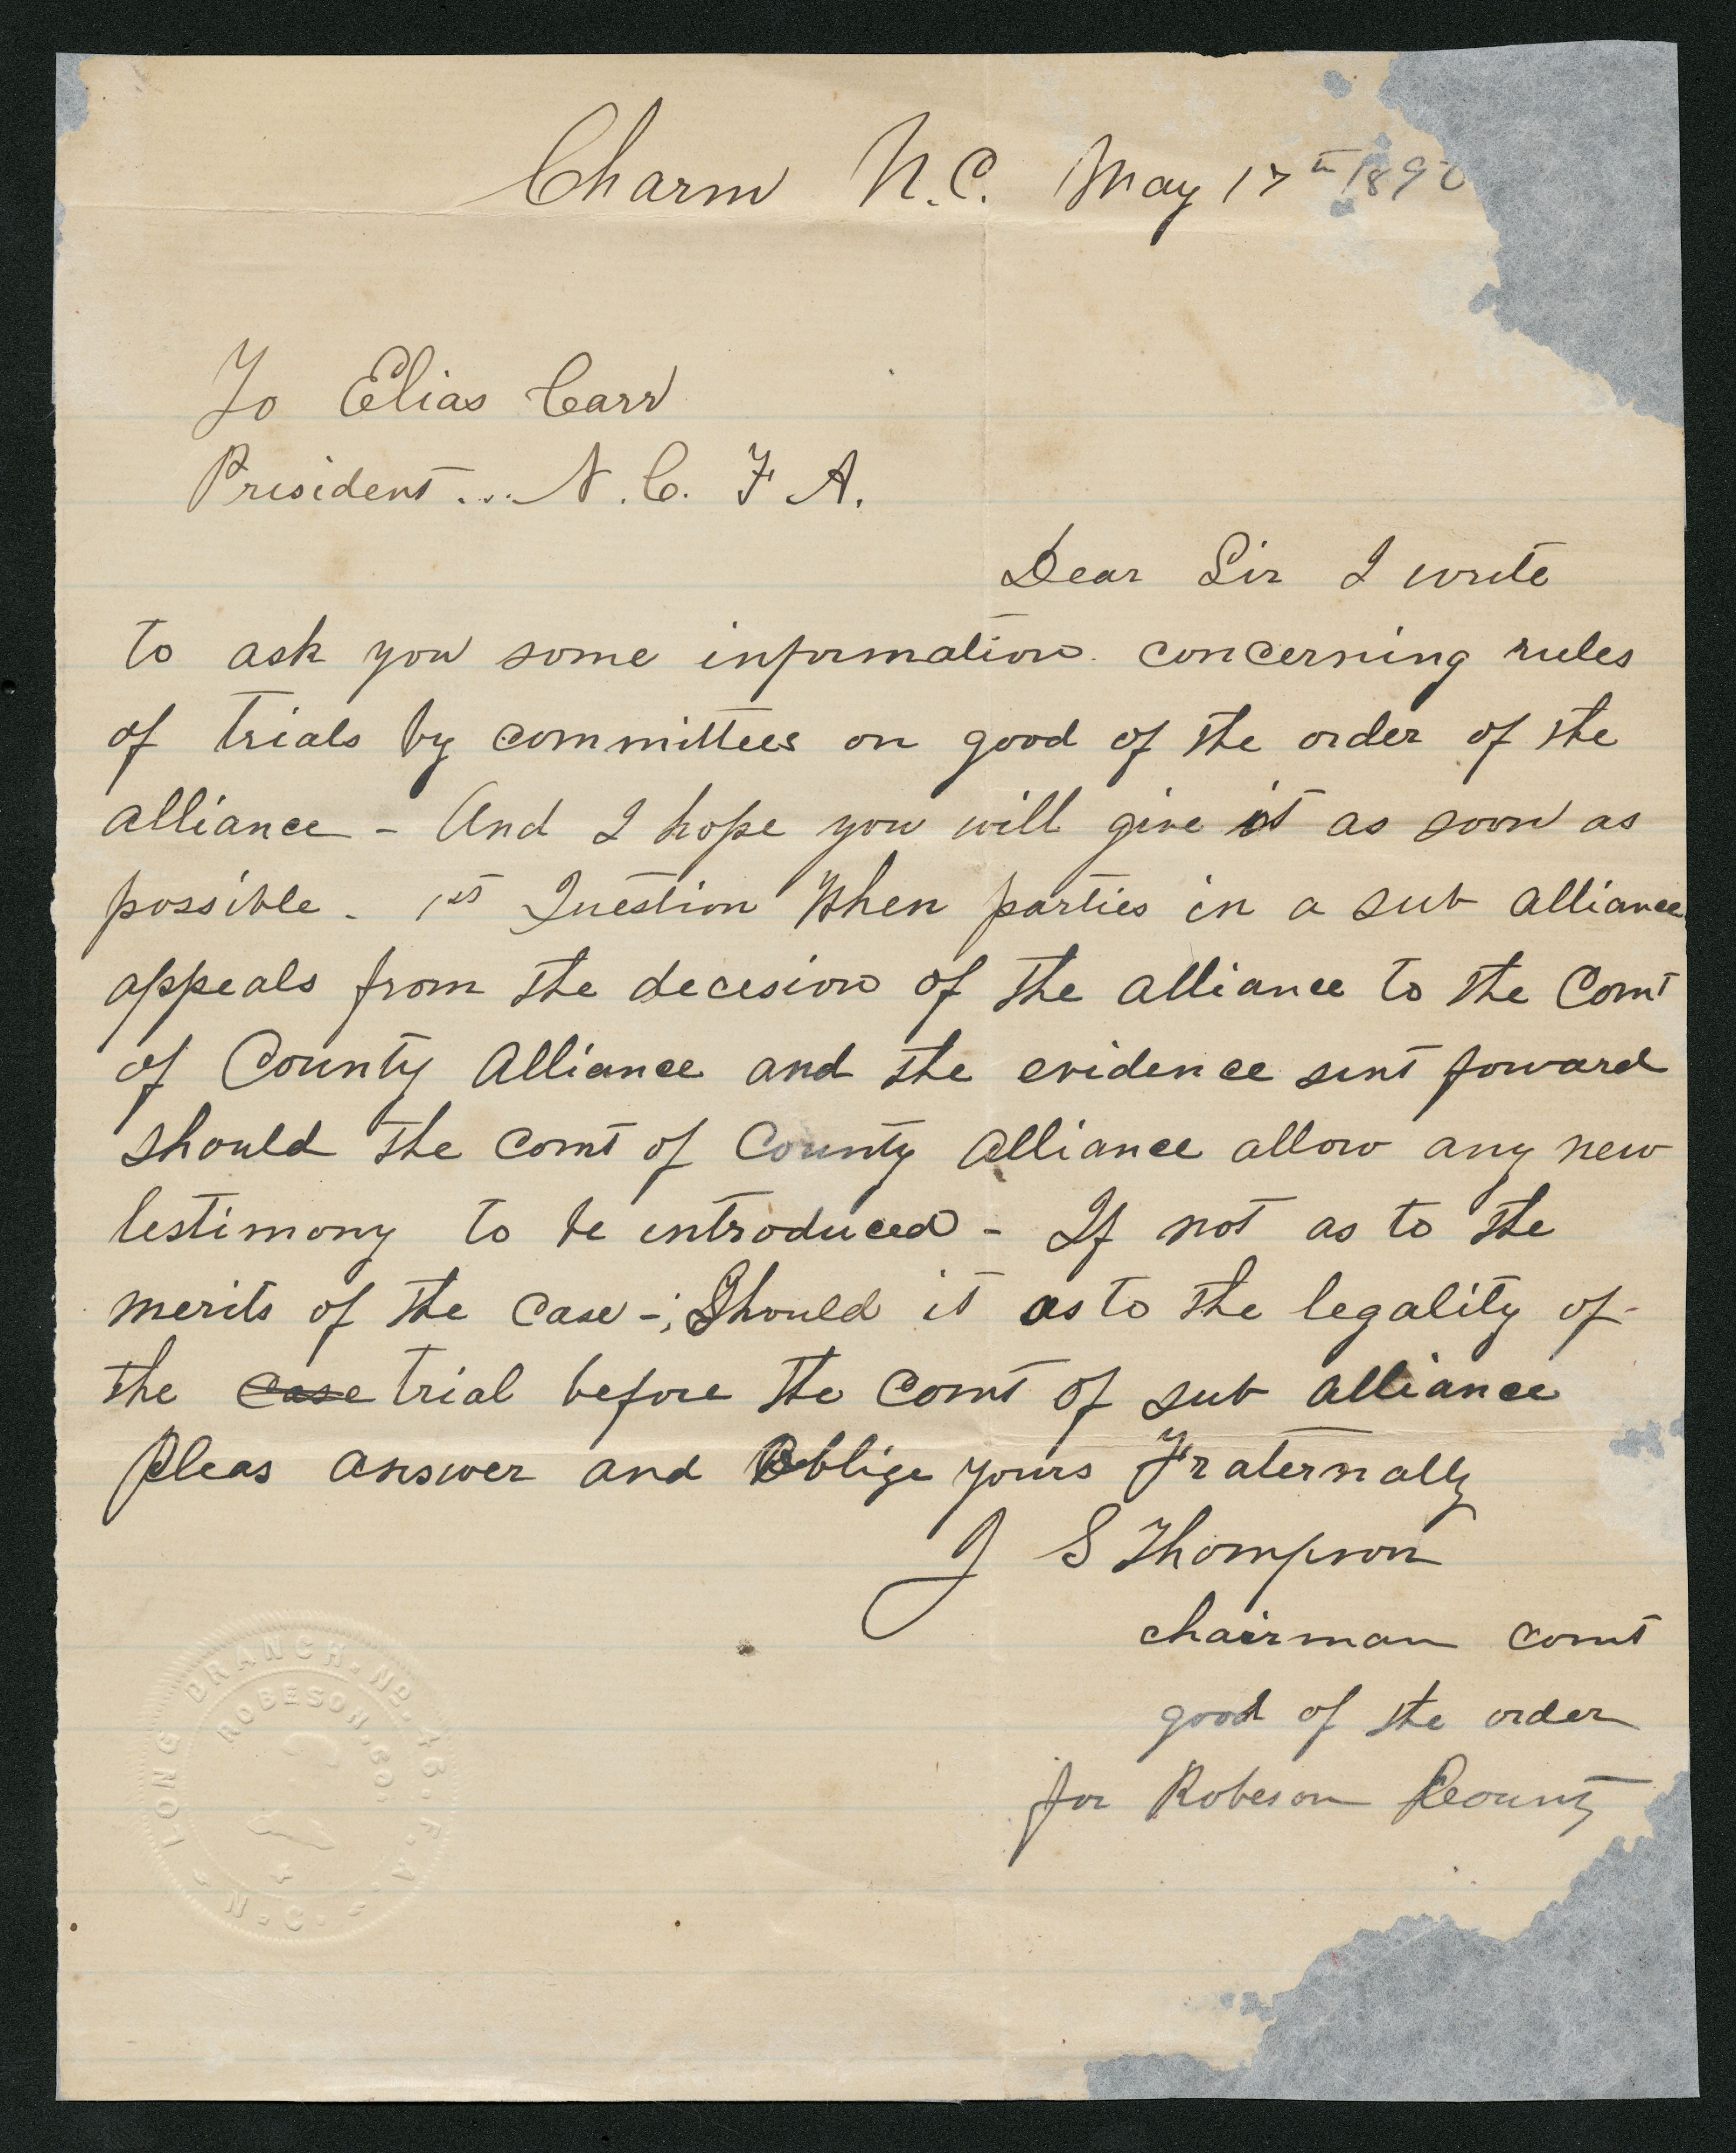 Charm N.C. May 17th 1890
To Elias Carr
President... N.C. F A.
Dear Sir I write
to ask you some information concerning rules
of trials by committees on good of the order of the
alliance - And I hope you will give it as soon as
possible. 1st Question When parties in a sub alliance
appeals from the decesion of the alliance to the Comt
of County Alliance and the evidence sent foward
should the comt of County alliance allow any new
testimony to be introduced - If not as to the
merits of the case -; Should it as to the legality of
the case trial before the comt of sub alliance
Pleas answer and Oblige yours Fraternally
J S Thompson
chairman comt
good of the order
for Robeson County
LONG BRANCH. NO. 46. F. A.
ROBESON. CO.
N. C.